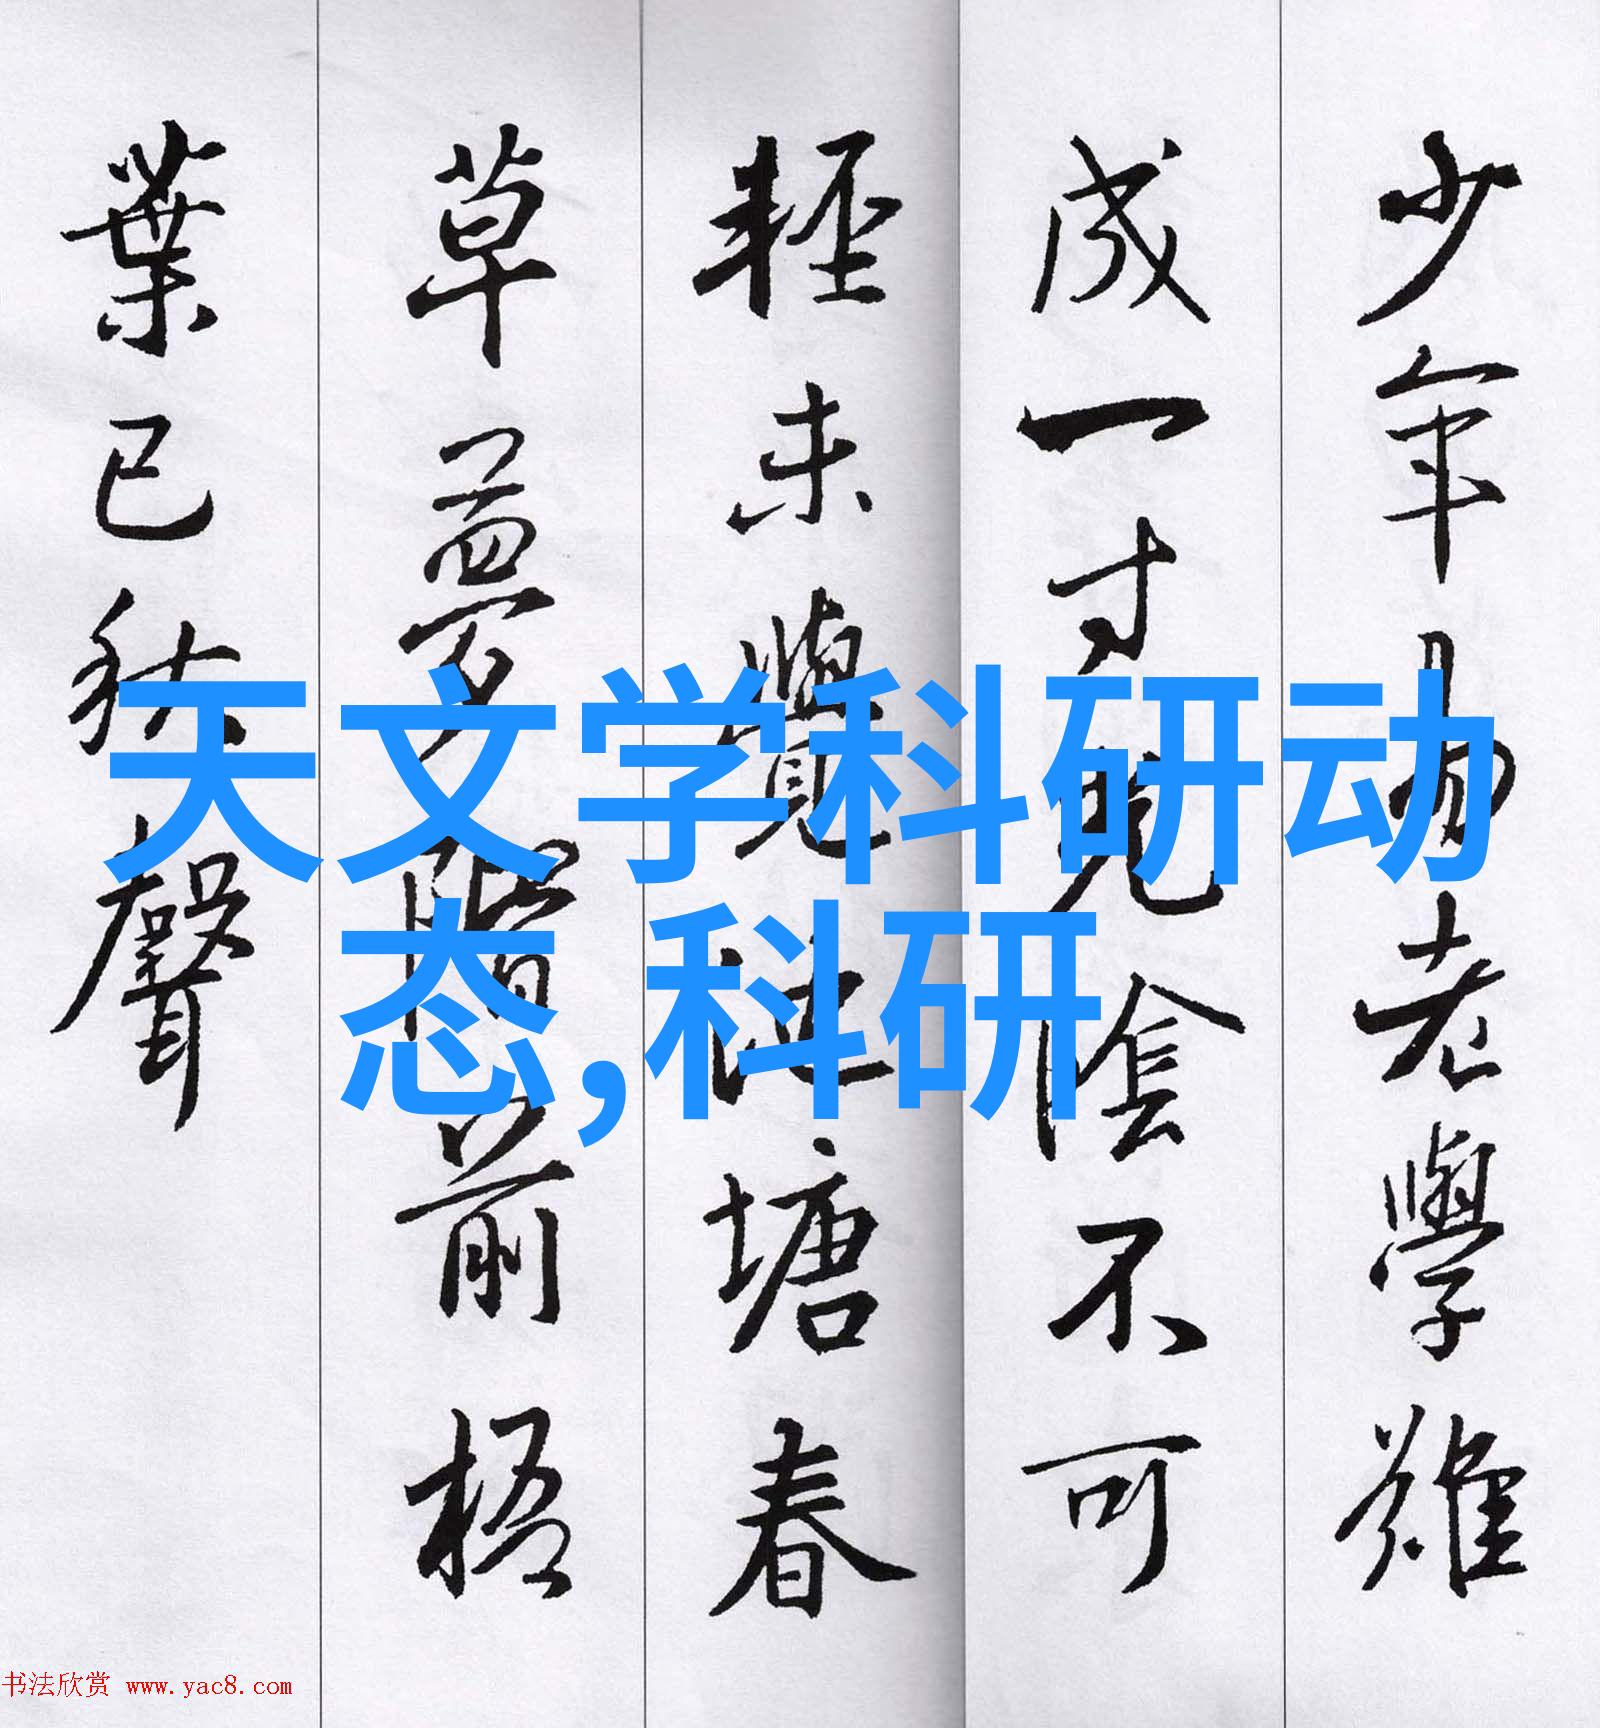 少年易老學難
成一寸光陰不可
輕未覺池塘春
草夢階前梧
葉已秋聲
天文学科研动
态,科研
书法欣赏 www.yac8.com